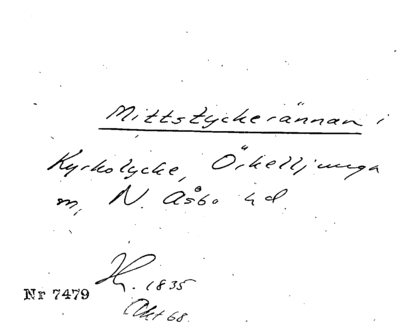 Mittstyckerännan i
Kyrkolycke, Örkelljunga
m, N. Åsbo hd.
H. 1835
Nr 7479
Okt 68.